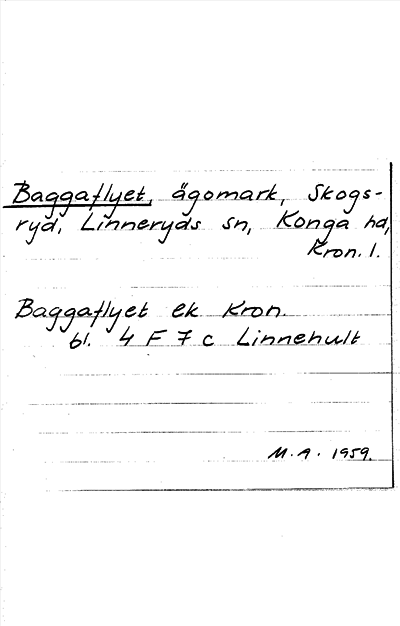 Baggaflyet, ägomark, Skogs-
ryd, Linneryds sn, Konga hd,
Kron. l.
Baggaflyet ek Kron.
bl. 4 F 7 c Linnehult
M.A. 1959.